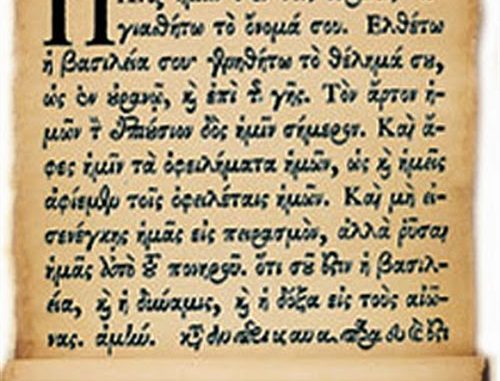 Π
γιασθήτω τὸ ὄνομά σου. Ελθέτω
ἡ βασιλεία σου· γενηθήτω τὸ θέλημά σου,
ὡς ἐν οὐρανῷ, καὶ ἐπὶ τῆς γῆς. Τὸν ἄρτον ἡ-
μῶν τὸν ἐπιούσιον δὸς ἡμῖν σήμερον. Καὶ ἄ-
φες ἡμῖν τὰ ὀφειλήματα ἡμῶν, ὡς καὶ ἡμεῖς
ἀφίεμεν τοῖς ὀφειλέταις ἡμῶν. Καὶ μὴ εἰ-
σενέγκῃς ἡμᾶς εἰς πειρασμὸν, ἀλλὰ ῥῦσαι
ἡμᾶς ἀπὸ τοῦ πονηροῦ. ὅτι σοῦ ἐστιν ἡ βασιλ-
εία, καὶ ἡ δύναμις, καὶ ἡ δόξα εἰς τοὺς αἰῶ-
νας. ἀμήν.